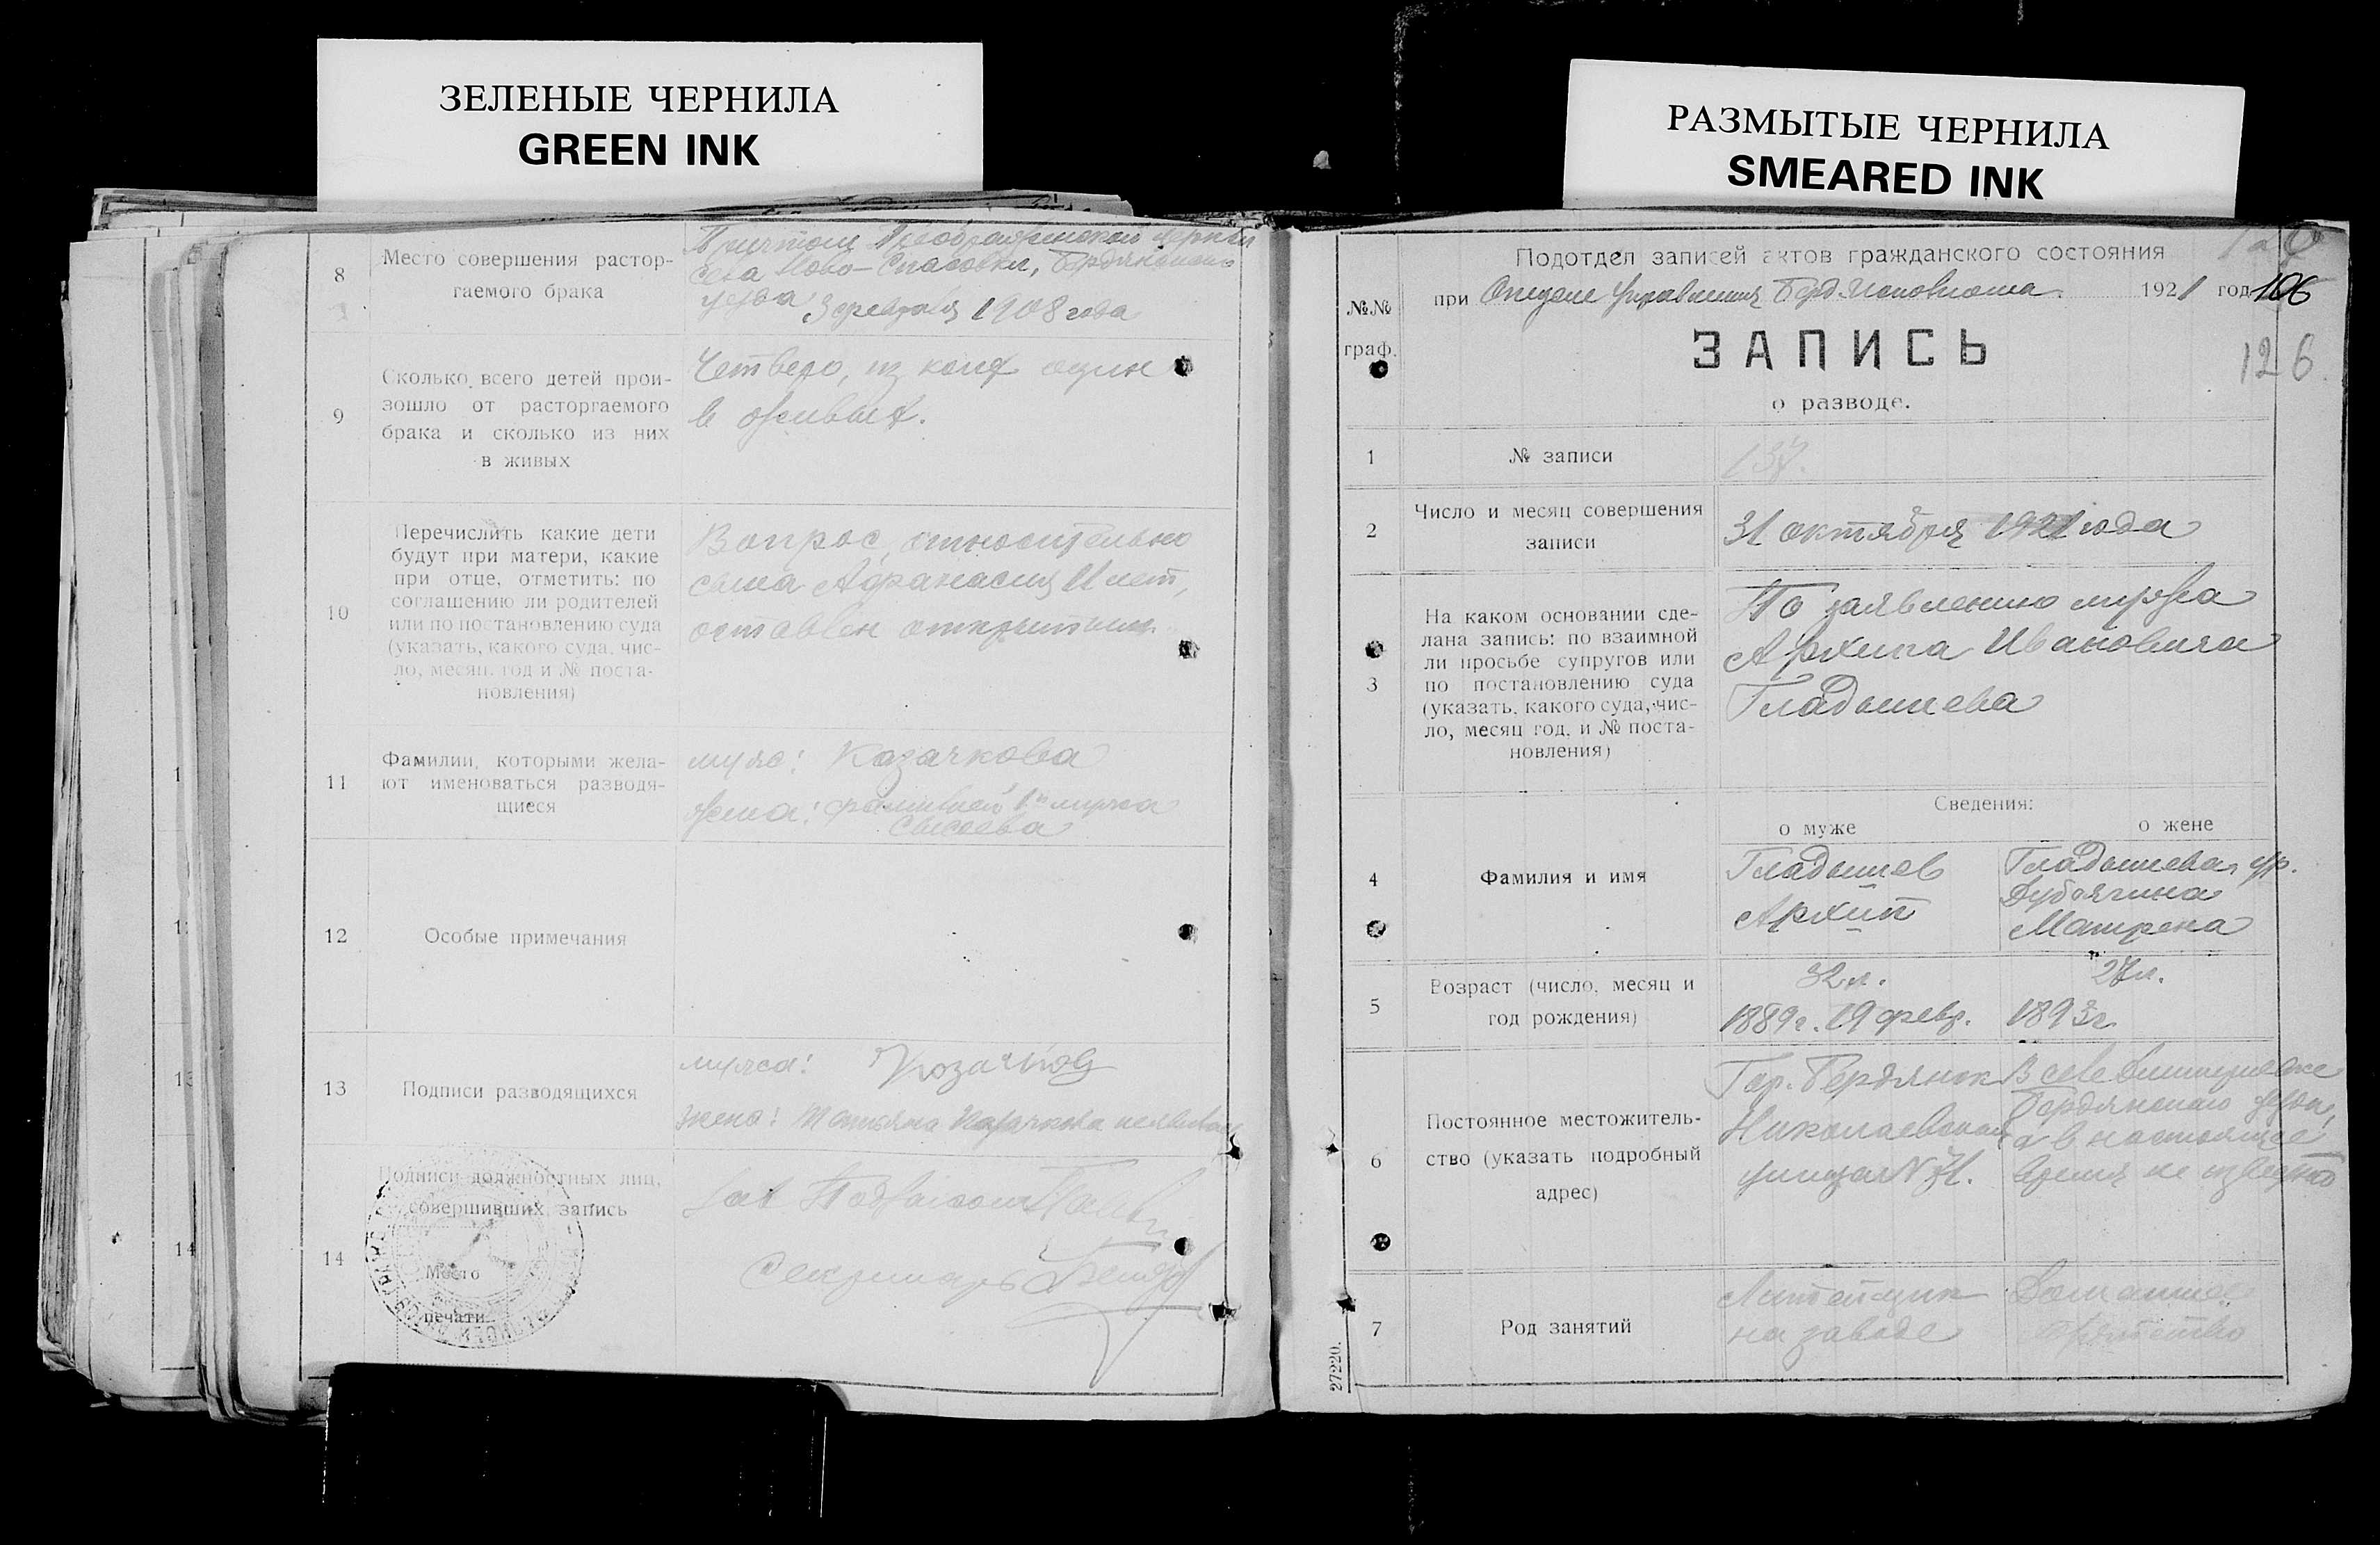 ЗЕЛЕНЫЕ ЧЕРНИЛА
GREEN INK
8
Место совершения растор-
гаемого брака
Причтом Преображенской церкви
села Ново-Спасовки, Бердянского
уезда 3 февраля 1908 года
9
Сколько всего детей прои-
зошло от расторгаемого
брака и сколько из них
в живых
Четверо, из коих один
в живых.
10
Перечислить какие дети
будут при матери, какие
при отце, отметить: по
соглашению ли родителей
или по постановлению суда
(указать, какого суда, чис-
ло, месяц, год и № поста-
новления)
Вопрос, относительно
сына Афанасия 11 лет,
оставлен открытым
11
Фамилии, которыми жела-
ют именоваться разводя-
щиеся
мужа: Казачкова
жена: фамилией 1го мужа
Сысоева
12
Особые примечания
13
Подписи разводящихся
мужа: Козачков
жена: Татьяна Казачкова
14
Подписи должностных лиц,
совершивших запись
Место
печати
Зав
Секретарь
РАЗМЫТЫЕ ЧЕРНИЛА
SMEARED INK
Подотдел записей актов гражданского состояния
№№
граф.
при Отделе Управления Берд. Исполкома 1921 год
106
126
ЗАПИСЬ
о разводе.
1
№ записи
137.
2
Число и месяц совершения
записи
31 октября 1921 года
3
На каком основании сде-
лана запись: по взаимной
ли просьбе супругов или
по постановлению суда
(указать, какого суда, чис-
ло, месяц год, и № поста-
новления)
По заявлению мужа
Архипа Ивановича
Гладышева
Сведения:
о муже
о жене
4
Фамилия и имя
Гладышев
Архип
Гладышева, ур.
Дубягина
Матрена
5
Возраст (число, месяц и
год рождения)
32 л.
1889 г. 19 февр.
27 л.
1893 г.
6
Постоянное местожитель-
ство (указать подробный
адрес)
Гор. Бердянск
Николаевская
улица №
В селе
Бердянского уезда,
а в настоящее
время не известно
7
Род занятий
Литейщик
на заводе
Домашнее
27220.